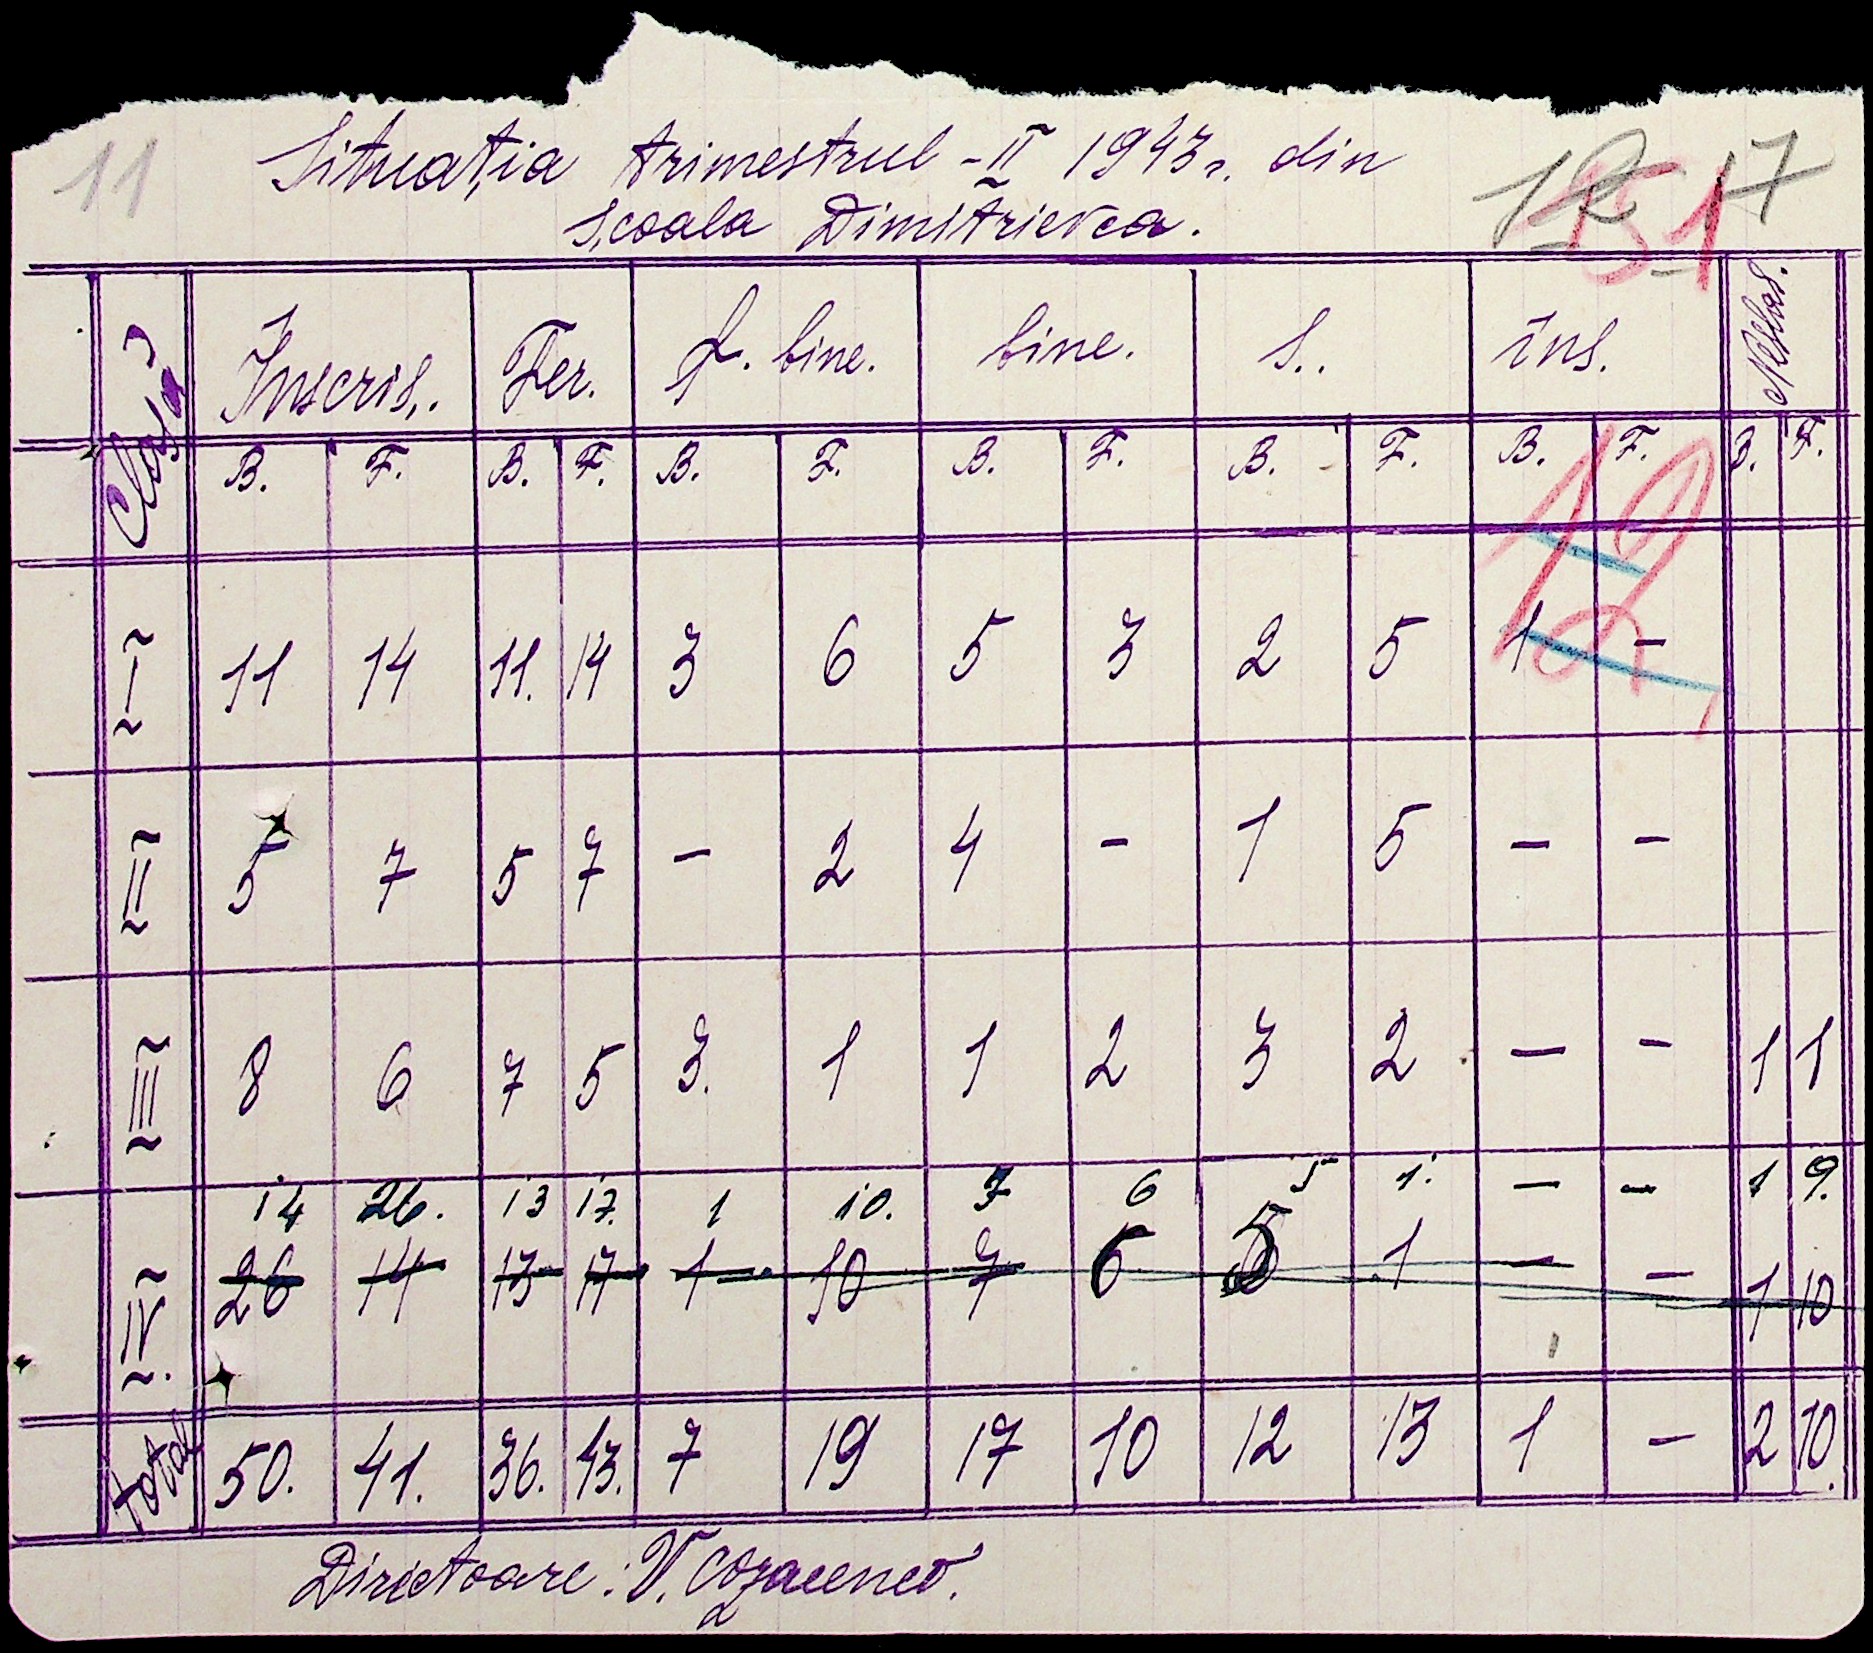 11
Situația trimestrul -II 1943 г. din
Școala Dimitrievca.
17
Clasa Inscriș. Fer. f. bine. bine. s.. ins.
B. F. B. F. B. F. B. F. B. F. B. F. B. F.
I 11 14 11. 14 3 6 5 3 2 5 1 -
II 5 7 5 7 - 2 4 - 1 5 - -
III 8 6 7 5 3. 1 1 2 3 2 - - 1 1
14 26. 13 17. 1 10. 7 6 5 1. - - 1 9.
IV 26 14 13 17 1 10 7 6 5 1 - - 1 10
total 50. 41. 36. 43. 7 19 17 10 12 13 1 - 2 10.
Directoare: V. Cozacenco.